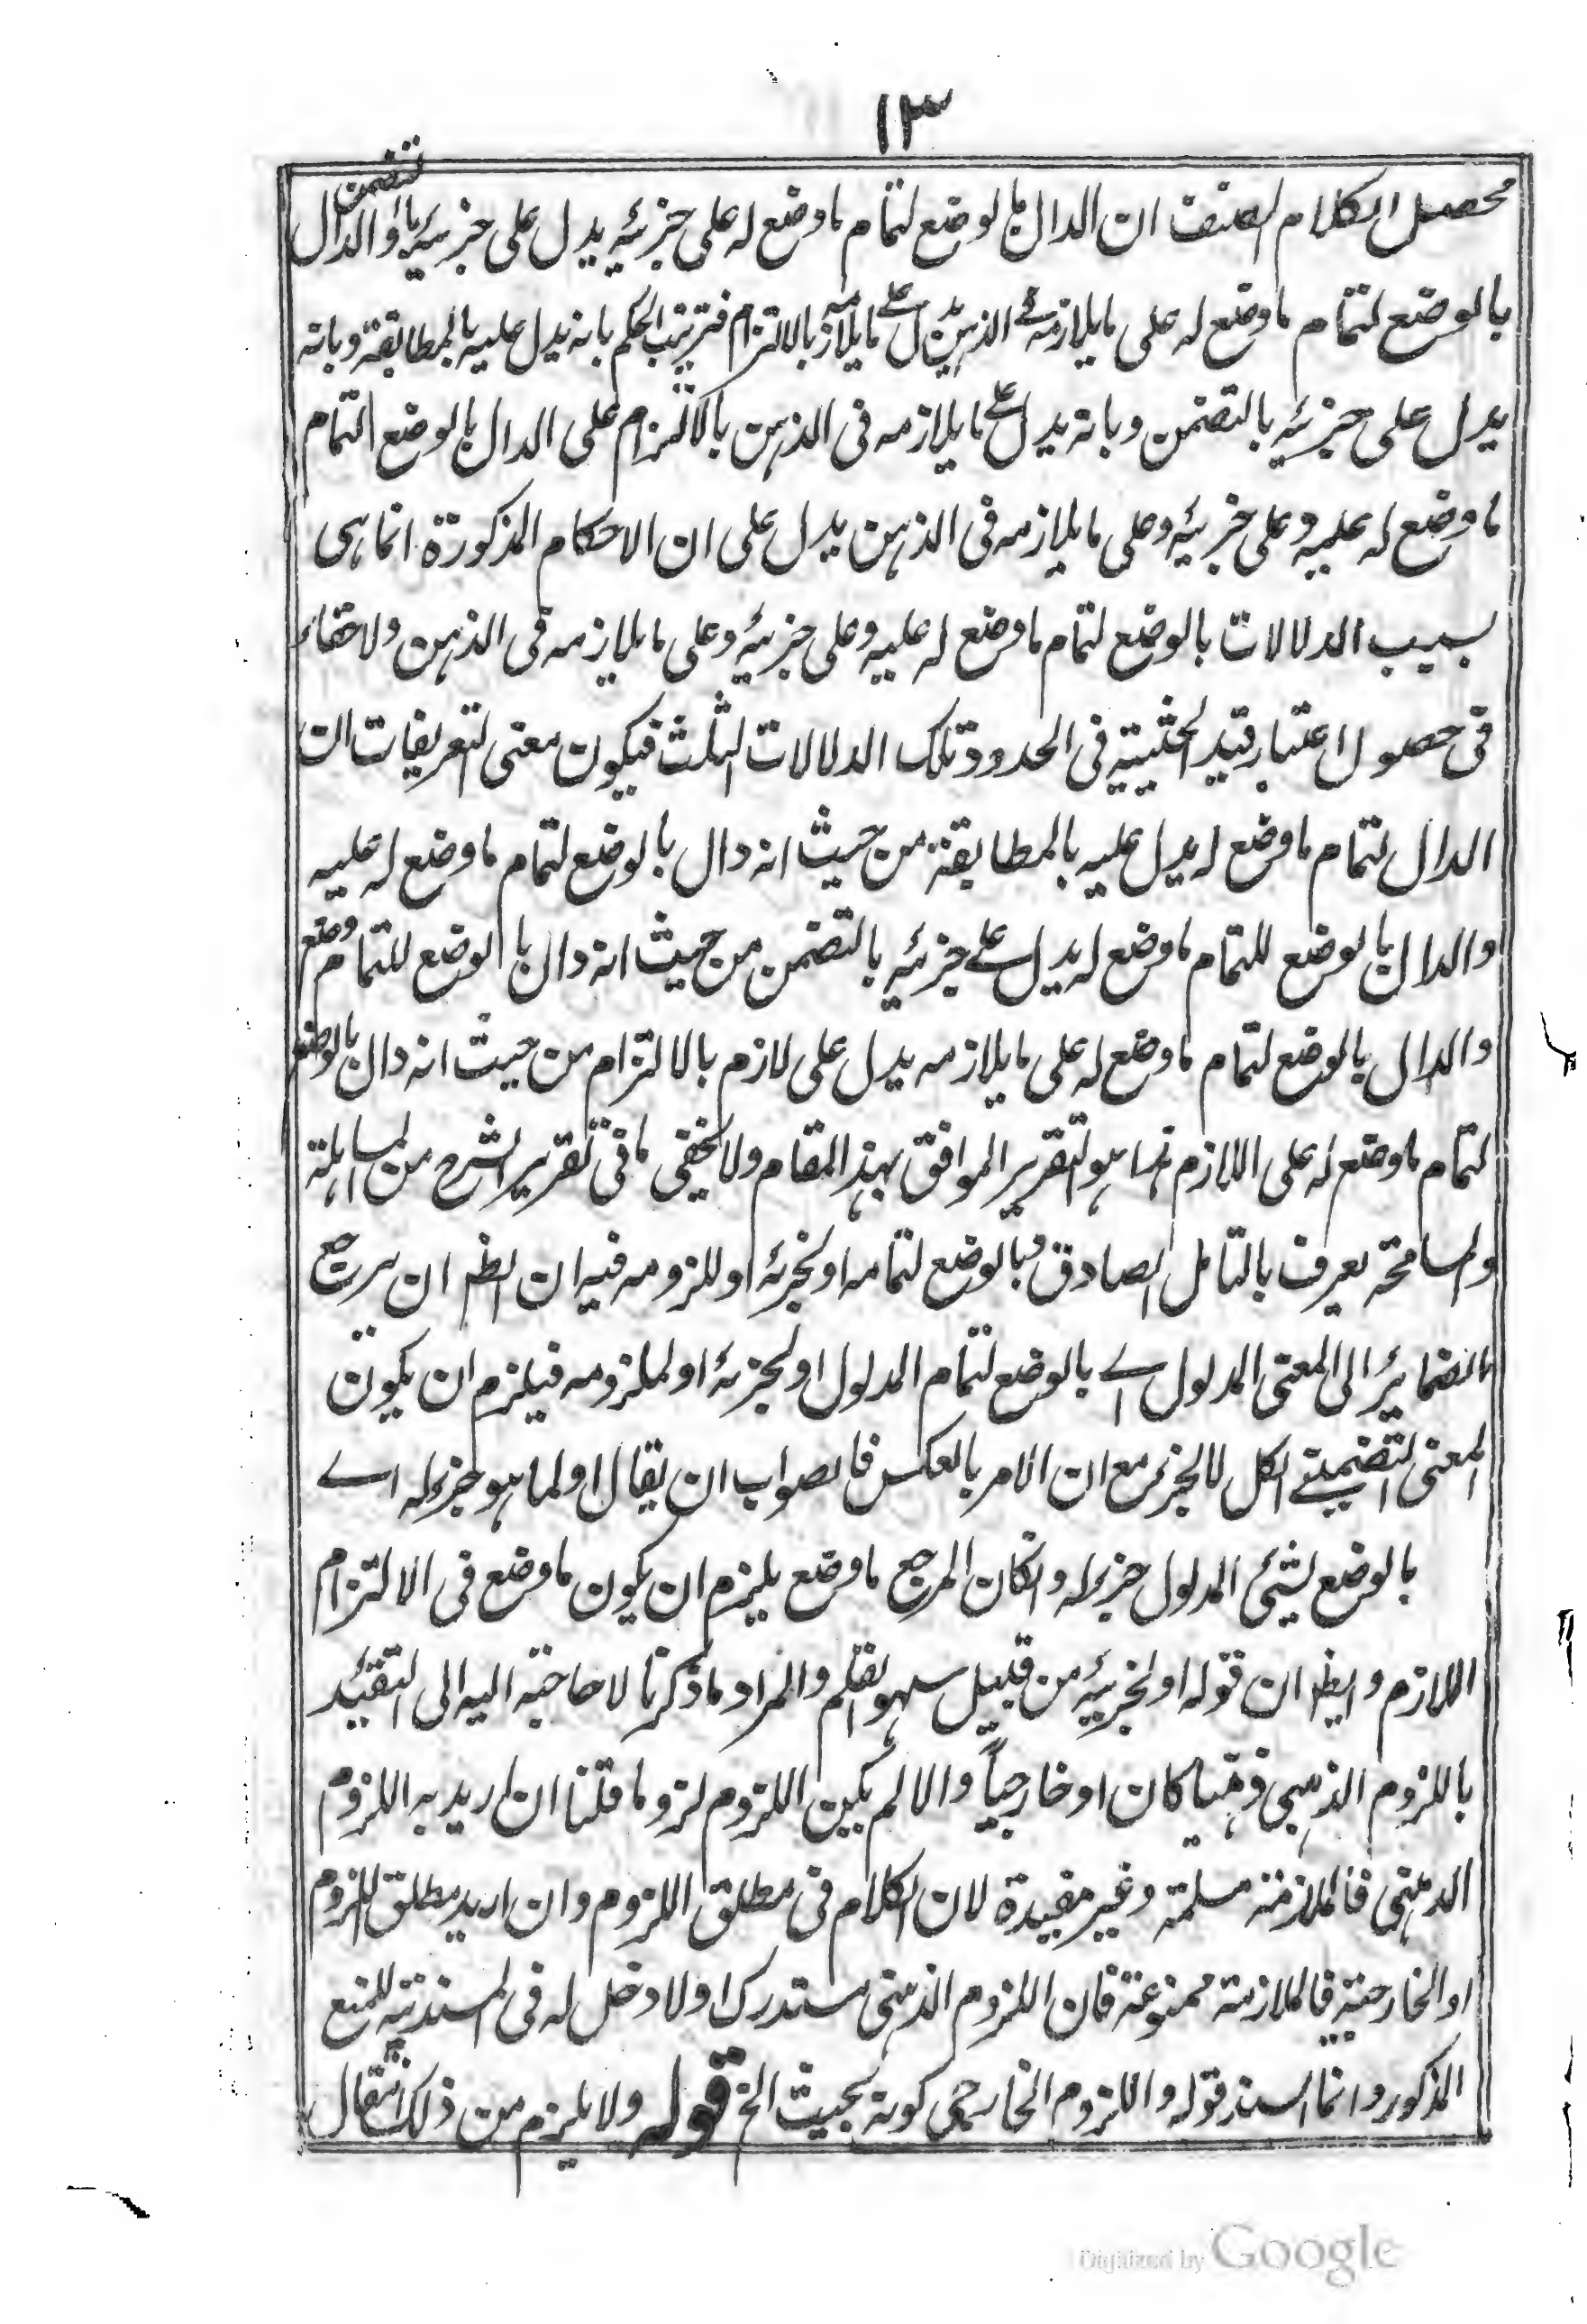 ١٣
محصل الكلام المصنف ان الدال بالوضع لتمام ما وضع له على جزئيه يدل على جزئيه بالتضمن والدال
بالوضع لتمام ما وضع له على ما يلازمه في الذهن يدل على ما يلازمه بالالتزام فترتب الحكم بانه يدل عليه بالمطابقة وبانه
يدل على جزئيه بالتضمن وبانه يدل على ما يلازمه فى الذهن بالالتزام على الدال بالوضع التمام
ما وضع له عليه وعلى جزئيه وعلى ما يلازمه فى الذهن يدل على ان الاحكام المذكورة انما هى
بسبب الدلالات بالوضع لتمام ما وضع له عليه وعلى جزئيه وعلى ما يلازمه فى الذهن ولا خفاء
فى حصول اعتبار قيد الحيثية فى الحدود تلك الدلالات الثلث فيكون معنى التعريفات ان
الدال لتمام ما وضع له يدل عليه بالمطابقة من حيث انه دال بالوضع لتمام ما وضع له عليه
والدال بالوضع للتمام ما وضع له يدل على جزئيه بالتضمن من حيث انه دال بالوضع للتمام وضع
والدال بالوضع لتمام ما وضع له على ما يلازمه يدل على لازم بالالتزام من حيث انه دال بالوضع
لتمام ما وضع له على اللازم هذا هو التقرير الموافق بهذا المقام ولا يخفى ما فى تقرير الشرح من المساهلة
والمسامحة يعرف بالتامل الصادق وبالوضع لتمامه او لجزئه او للزومه فيه ان الظم ان يرجع
الضمائر الى المعنى المدلول اے بالوضع لتمام المدلول او لجزئه او لملزومه فيلزم ان يكون
المعنى التضمينے الكل لا الجزء مع ان الامر بالعكس فالصواب ان يقال او لما هو جزء له اے
بالوضع لشئ المدلول جزء له وان كان المرجع ما وضع يلزم ان يكون ما وضع فى الالتزام
اللازم والظم ان قوله او لجزئيه من قبيل سهو القلم والمراد ما ذكرنا لا حاجة اليه الى التقئيد
باللزوم الذهنى ذهنيا كان او خارجياً والا لم يكن اللزوم لزوما قلنا ان اريد به اللزوم
الذهنى فالملازمة مسلمة وغير مفيدة لان الكلام فى مطلق اللزوم وان اريد مطلق اللزوم
او الخارجية فالملازمة ممنوعة فان اللزوم الذهنى مستدرك او لا دخل له فى لمسندية للمنع
المذكور وانما السند قوله واللزوم الخارجى كونه بحيث الخ قوله ولا يلزم من ذلك انتقال
Digitized by Google